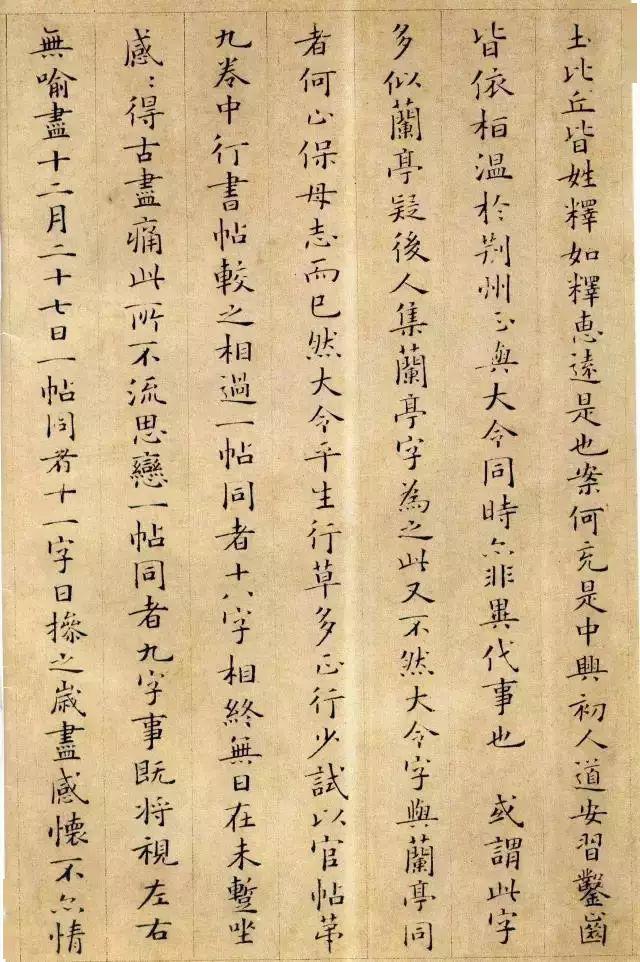 土比丘皆姓釋如釋惠遠是也案何充是中興初人道安習鑿齒
皆依桓溫於荆州正與大令同時尒非異代事也 或謂此字
多似蘭亭疑後人集蘭亭字為之此又不然大令字與蘭亭同
者何止保母志而已然大令平生行草多正行少試以官帖第
九卷中行書帖較之相過一帖同者十八字相終無日在未蹔坐
感:得古盡痛此所不流思戀一帖同者九字事既将視左右
無喻盡十二月二十七日一帖同者十一字日操之歲盡感懷不尒情